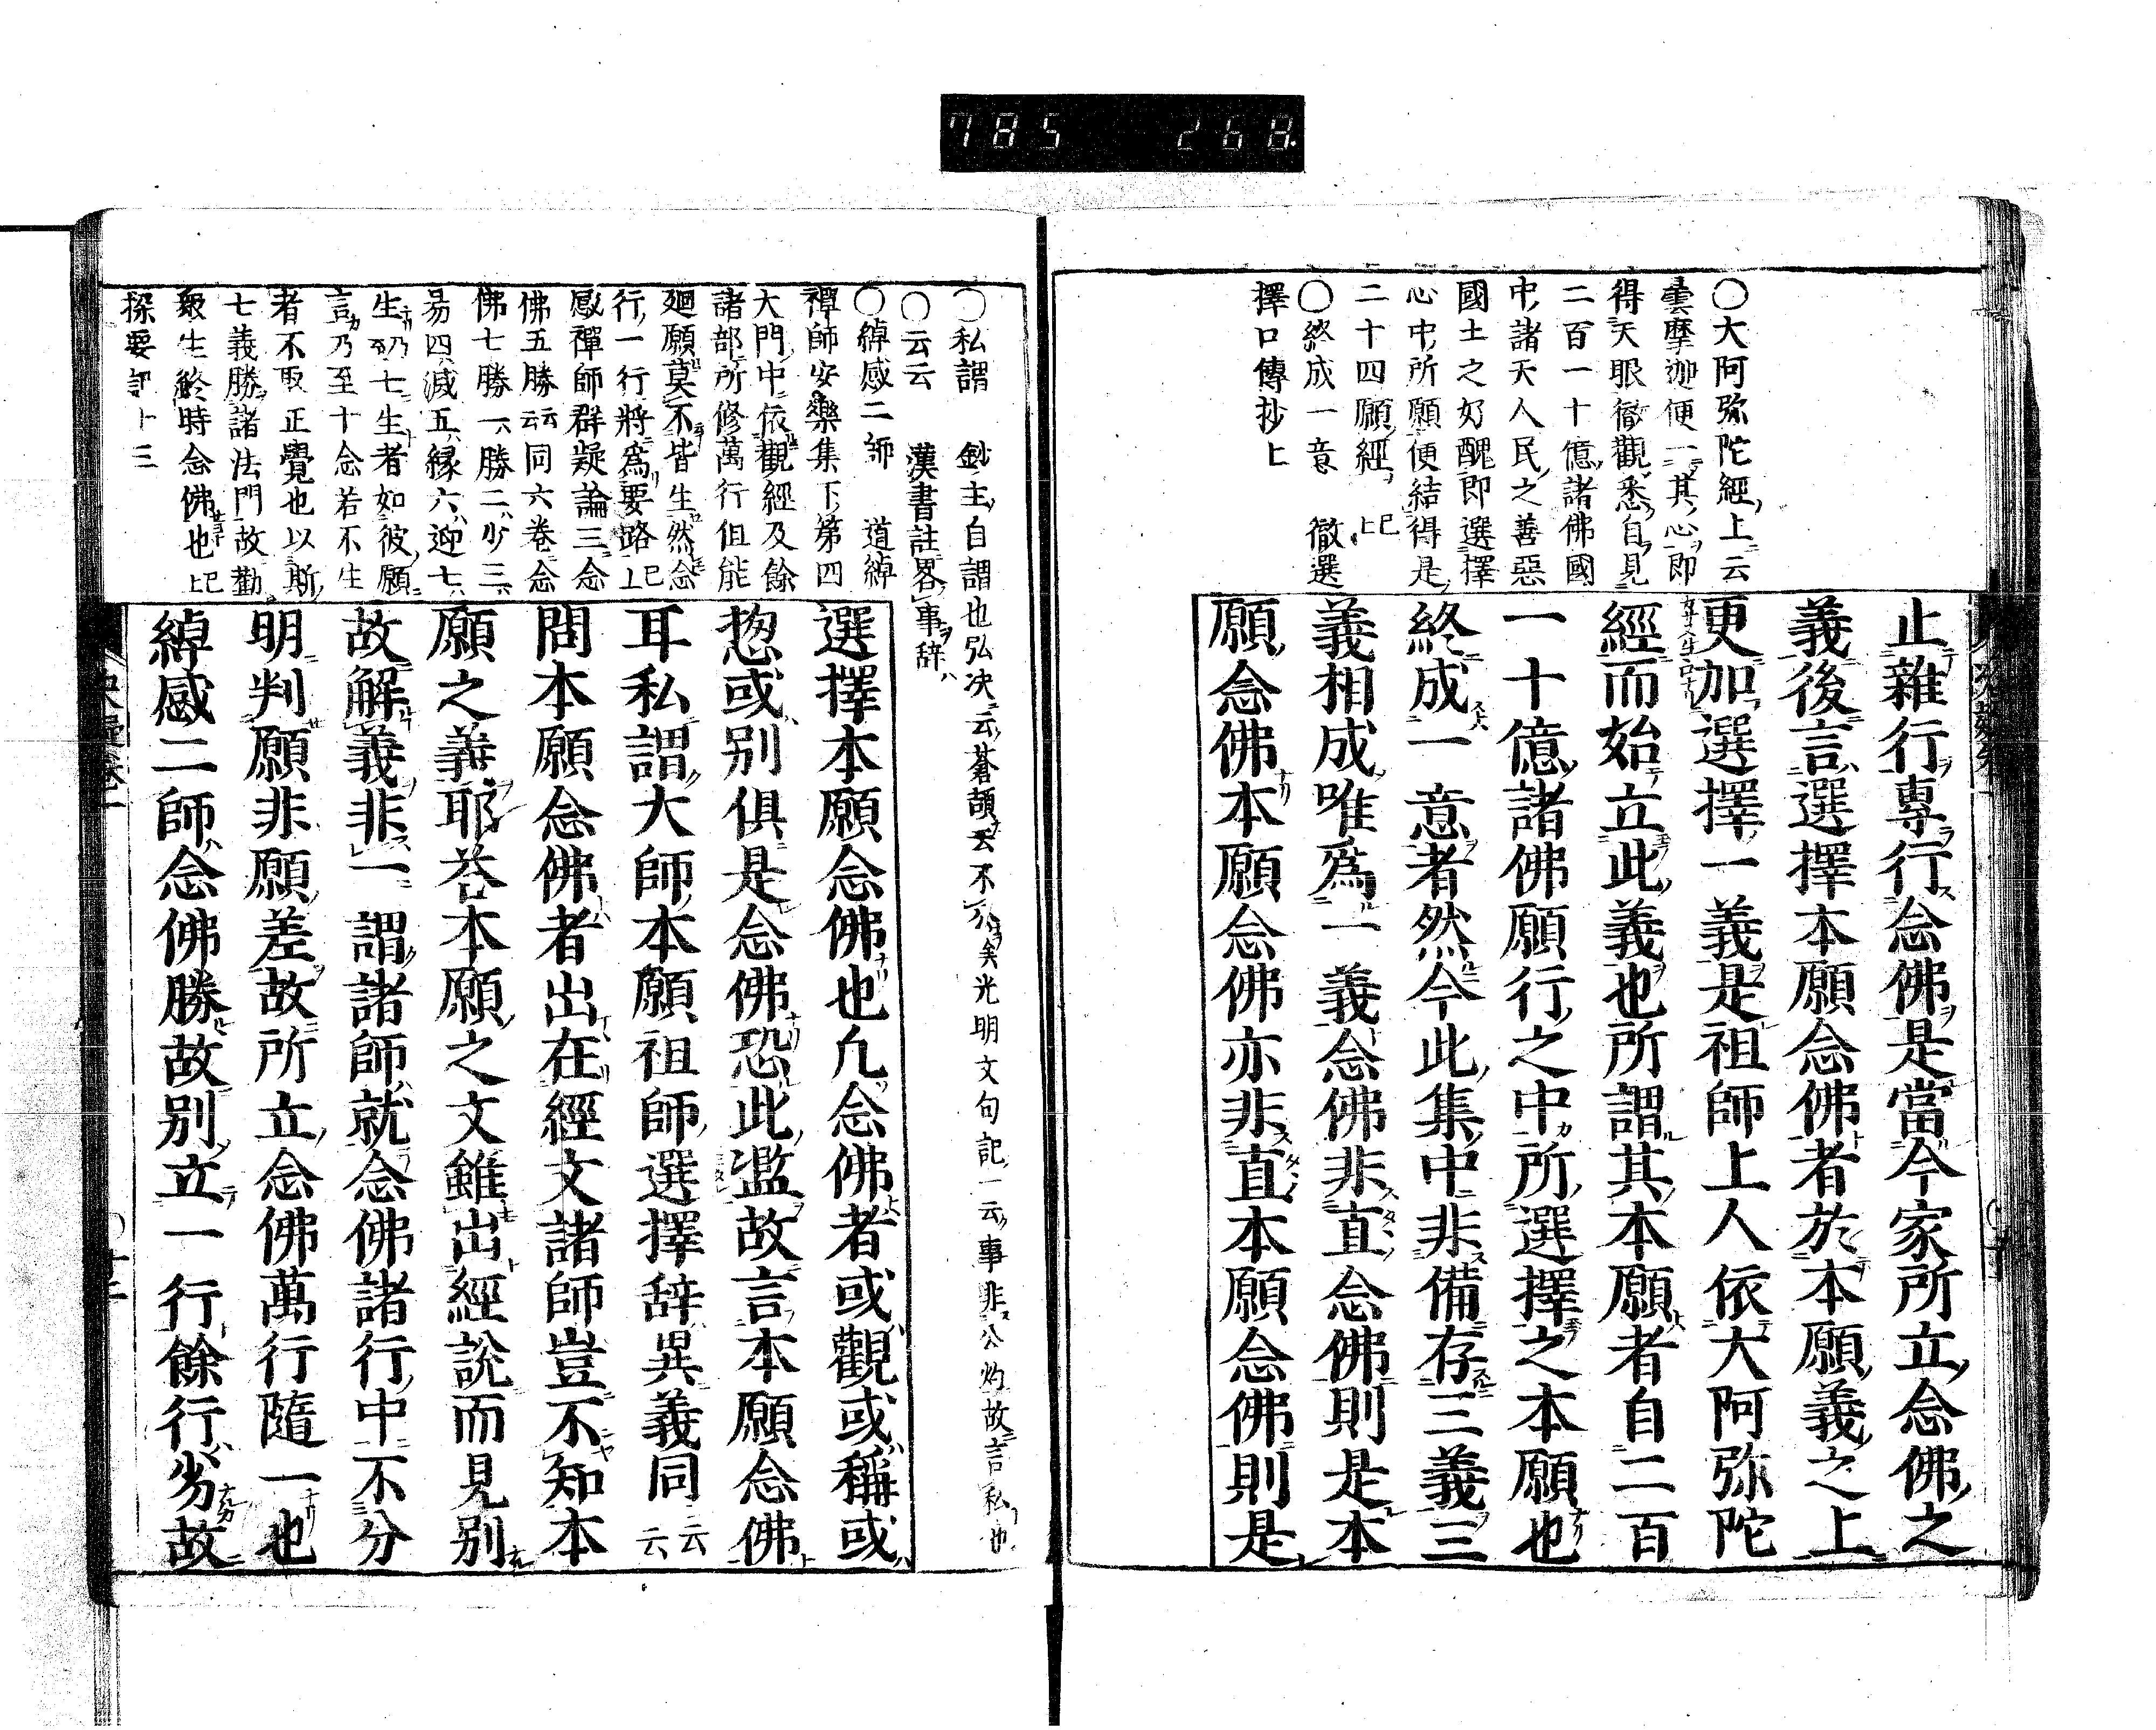 785 268.
○大阿弥陀經上云
曇摩迦便一其心即
得天眼徹觀悉自見
二百一十億諸佛國
中諸天人民之善惡
國土之好醜即選擇
心中所願便結得是
二十四願經 已上
○終成一意 徹選
擇口傳抄上
止雜行專行念佛是當今家所立念佛之
義後言選擇本願念佛者於本願義之上
更加選擇一義是祖師上人依大阿弥陀
經而始立此義也所謂其本願者自二百
一十億諸佛願行之中所選擇之本願也
終成一意者然今此集中非備存三義三
義相成唯爲一義念佛非直念佛則是本
願念佛本願念佛亦非直本願念佛則是
○私謂 鈔主自謂也弘决云蒼頡云不公矣光明文句記一云事非公灼故言私也
○云云 漢書註畧事辞
○綽感二師 道綽
禪師安樂集下第四
大門中依觀經及餘
諸部所修萬行但能
廻願莫不皆生然念
行一行將爲要路已上
感禪師群疑論三念
佛五勝云云同六卷念
佛七勝一勝二少三
易四滅五縁六迎七
生乃七生者如彼願
言乃至十念若不生
者不取正覺也以斯
七義勝諸法門故勸
衆生終時念佛也已上
探要記十三
選擇本願念佛也凢念佛者或觀或稱或
惣或别俱是念佛恐此濫故言本願念佛
耳私謂大師本願祖師選擇辞異義同云云
問本願念佛者出在經文諸師豈不知本
願之義耶荅本願之文雖出經說而見别
故解義非一謂諸師就念佛諸行中不分
明判願非願差故所立念佛萬行隨一也
綽感二師念佛勝故别立一行餘行劣故